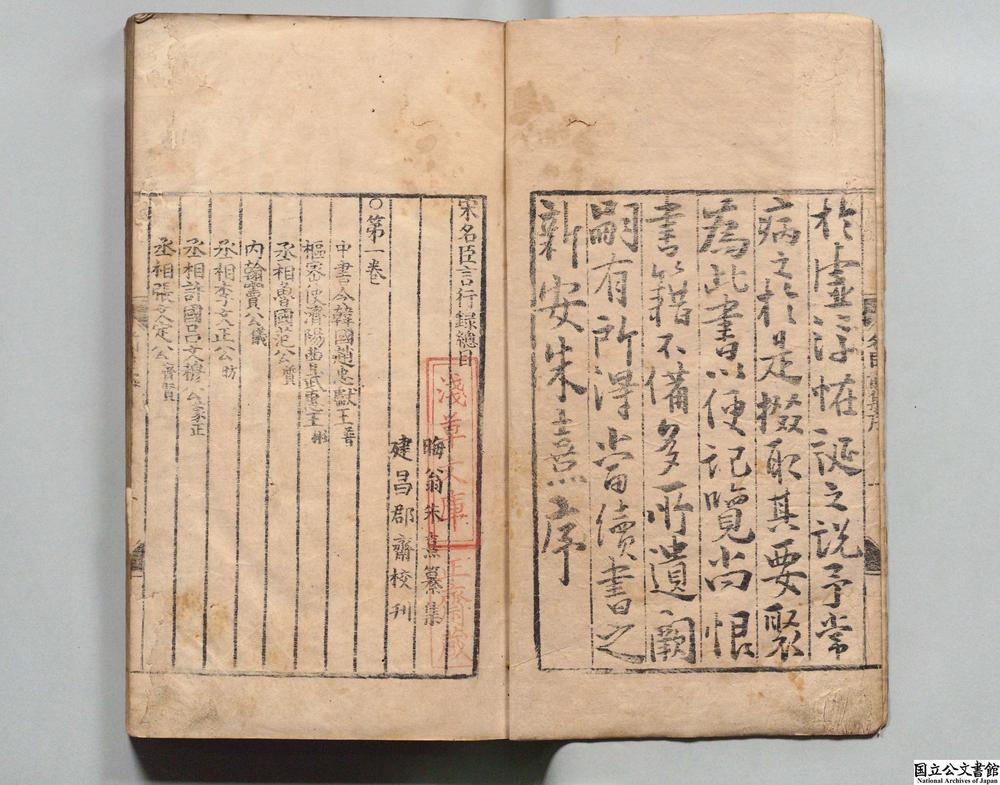 於虛浮怪誕之説予常
病之於是掇取其要聚
為此書以便記覽尚恨
書籍不備多所遺闕
嗣有所得當續書之
新安朱熹序
宋名臣言行録總目
晦翁朱熹纂集
建昌郡齋校刊
○第一卷
中書令韓國趙忠獻王普
樞密使濟陽曹武惠王彬
丞相魯國范公質
内翰竇公儀
丞相李文正公昉
丞相許國呂文穆公蒙正
丞相張文定公齊賢
淺草文庫
国立公文書館
National Archives of Japan